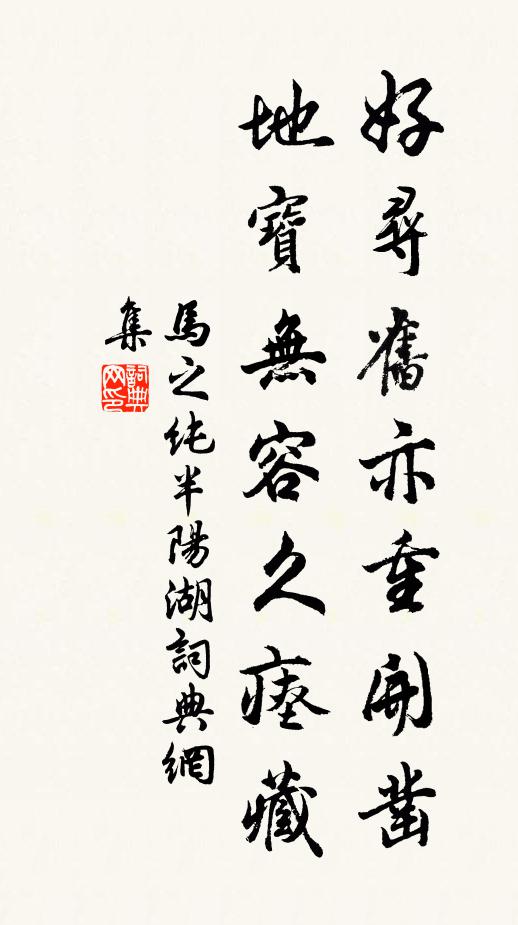 好尋舊亦重開鑿
地寶無容久瘞藏
馬之純半陽湖詞典網
集
詞典网印